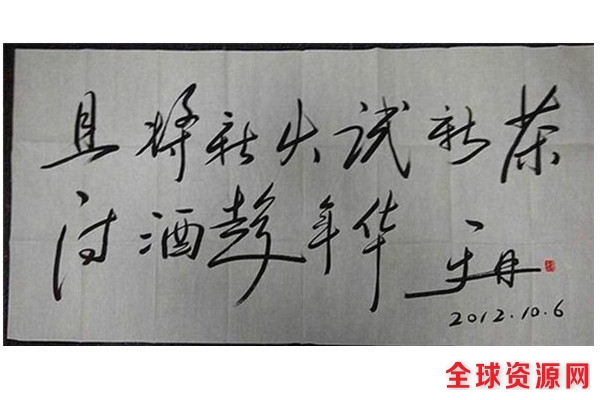 且将新火试新茶
诗酒趁年华 于丹
2012.10.6
全球资源网